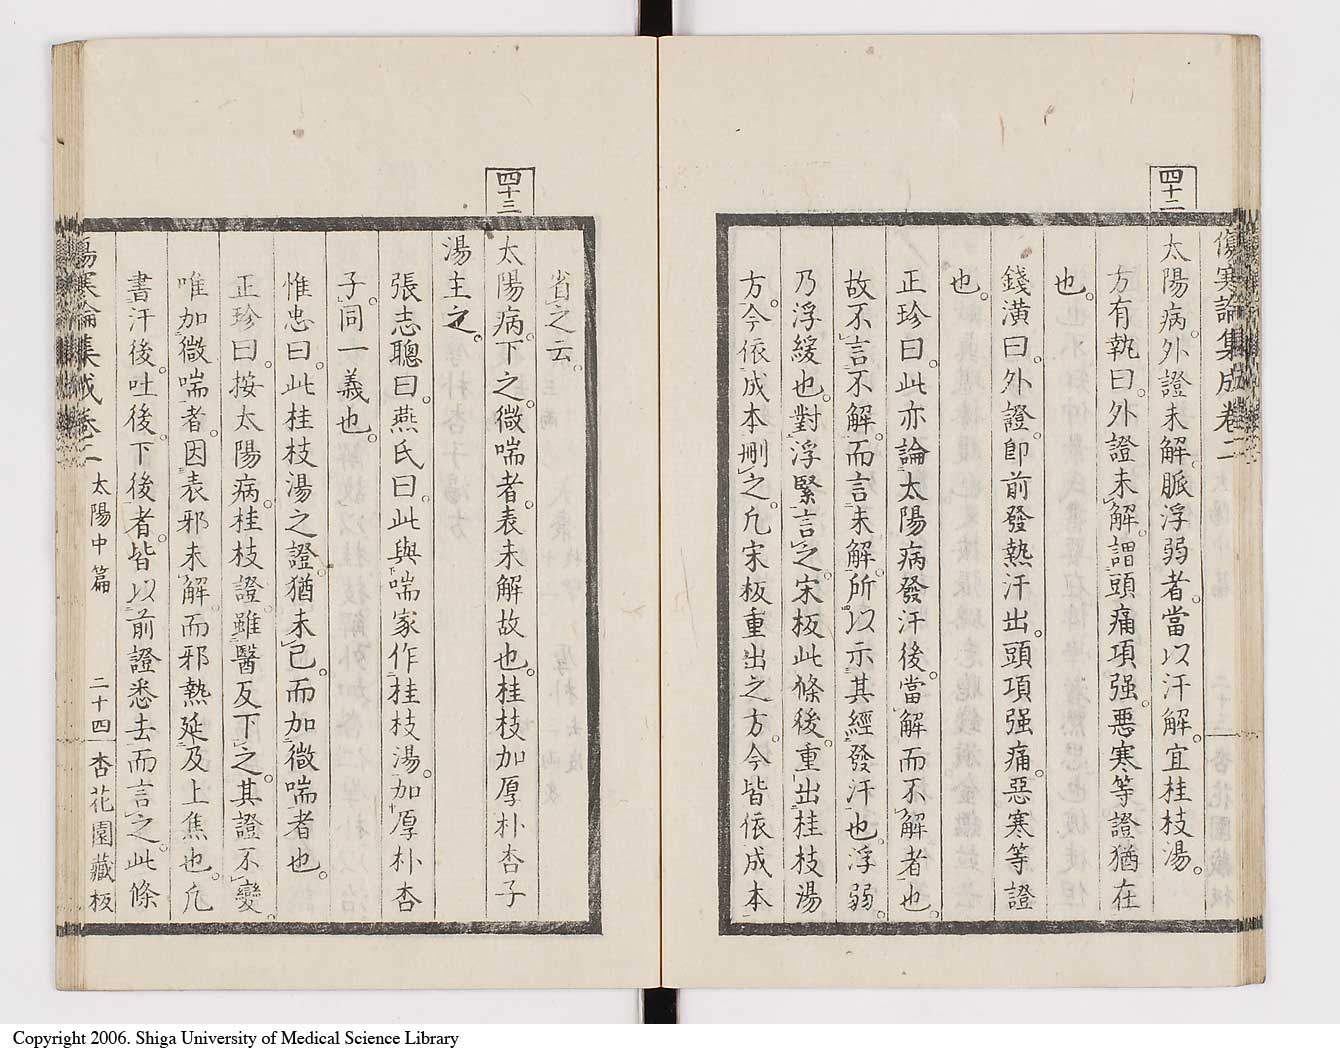 四十二
傷寒論集成卷二
太陽病。外證未解。脈浮弱者。當以汗解。宜桂枝湯。
方有執曰。外證未解。謂頭痛項强。惡寒等證猶在
也。
錢潢曰。外證卽前發熱汗出。頭項强痛。惡寒等證
也。
正珍曰。此亦論太陽病發汗後。當解而不解者也。
故不言不解。而言未解。所以示其經發汗也。浮弱。
乃浮緩也。對浮緊言之。宋板此條後。重出桂枝湯
方。今依成本刪之。凡宋板重出之方。今皆依成本
省之云。
四十三
太陽病。下之。微喘者。表未解故也。桂枝加厚朴杏子
湯主之。
張志聰曰。燕氏曰。此與喘家作桂枝湯。加厚朴杏
子。同一義也。
惟忠曰。此桂枝湯之證。猶未已。而加微喘者也。
正珍曰。按太陽病。桂枝證。雖醫反下之。其證不變。
唯加微喘者。因表邪未解。而邪熱延及上焦也。凡
書汗後。吐後。下後者。皆以前證悉去而言之。此條
傷寒論集成卷二 太陽中篇 二十四 杏花園藏板
Copyright 2006. Shiga University of Medical Science Library